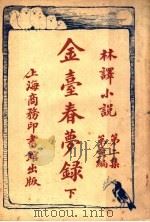 林譯小說
第二集
第　編
金臺春夢錄 下
上海商務印書館出版